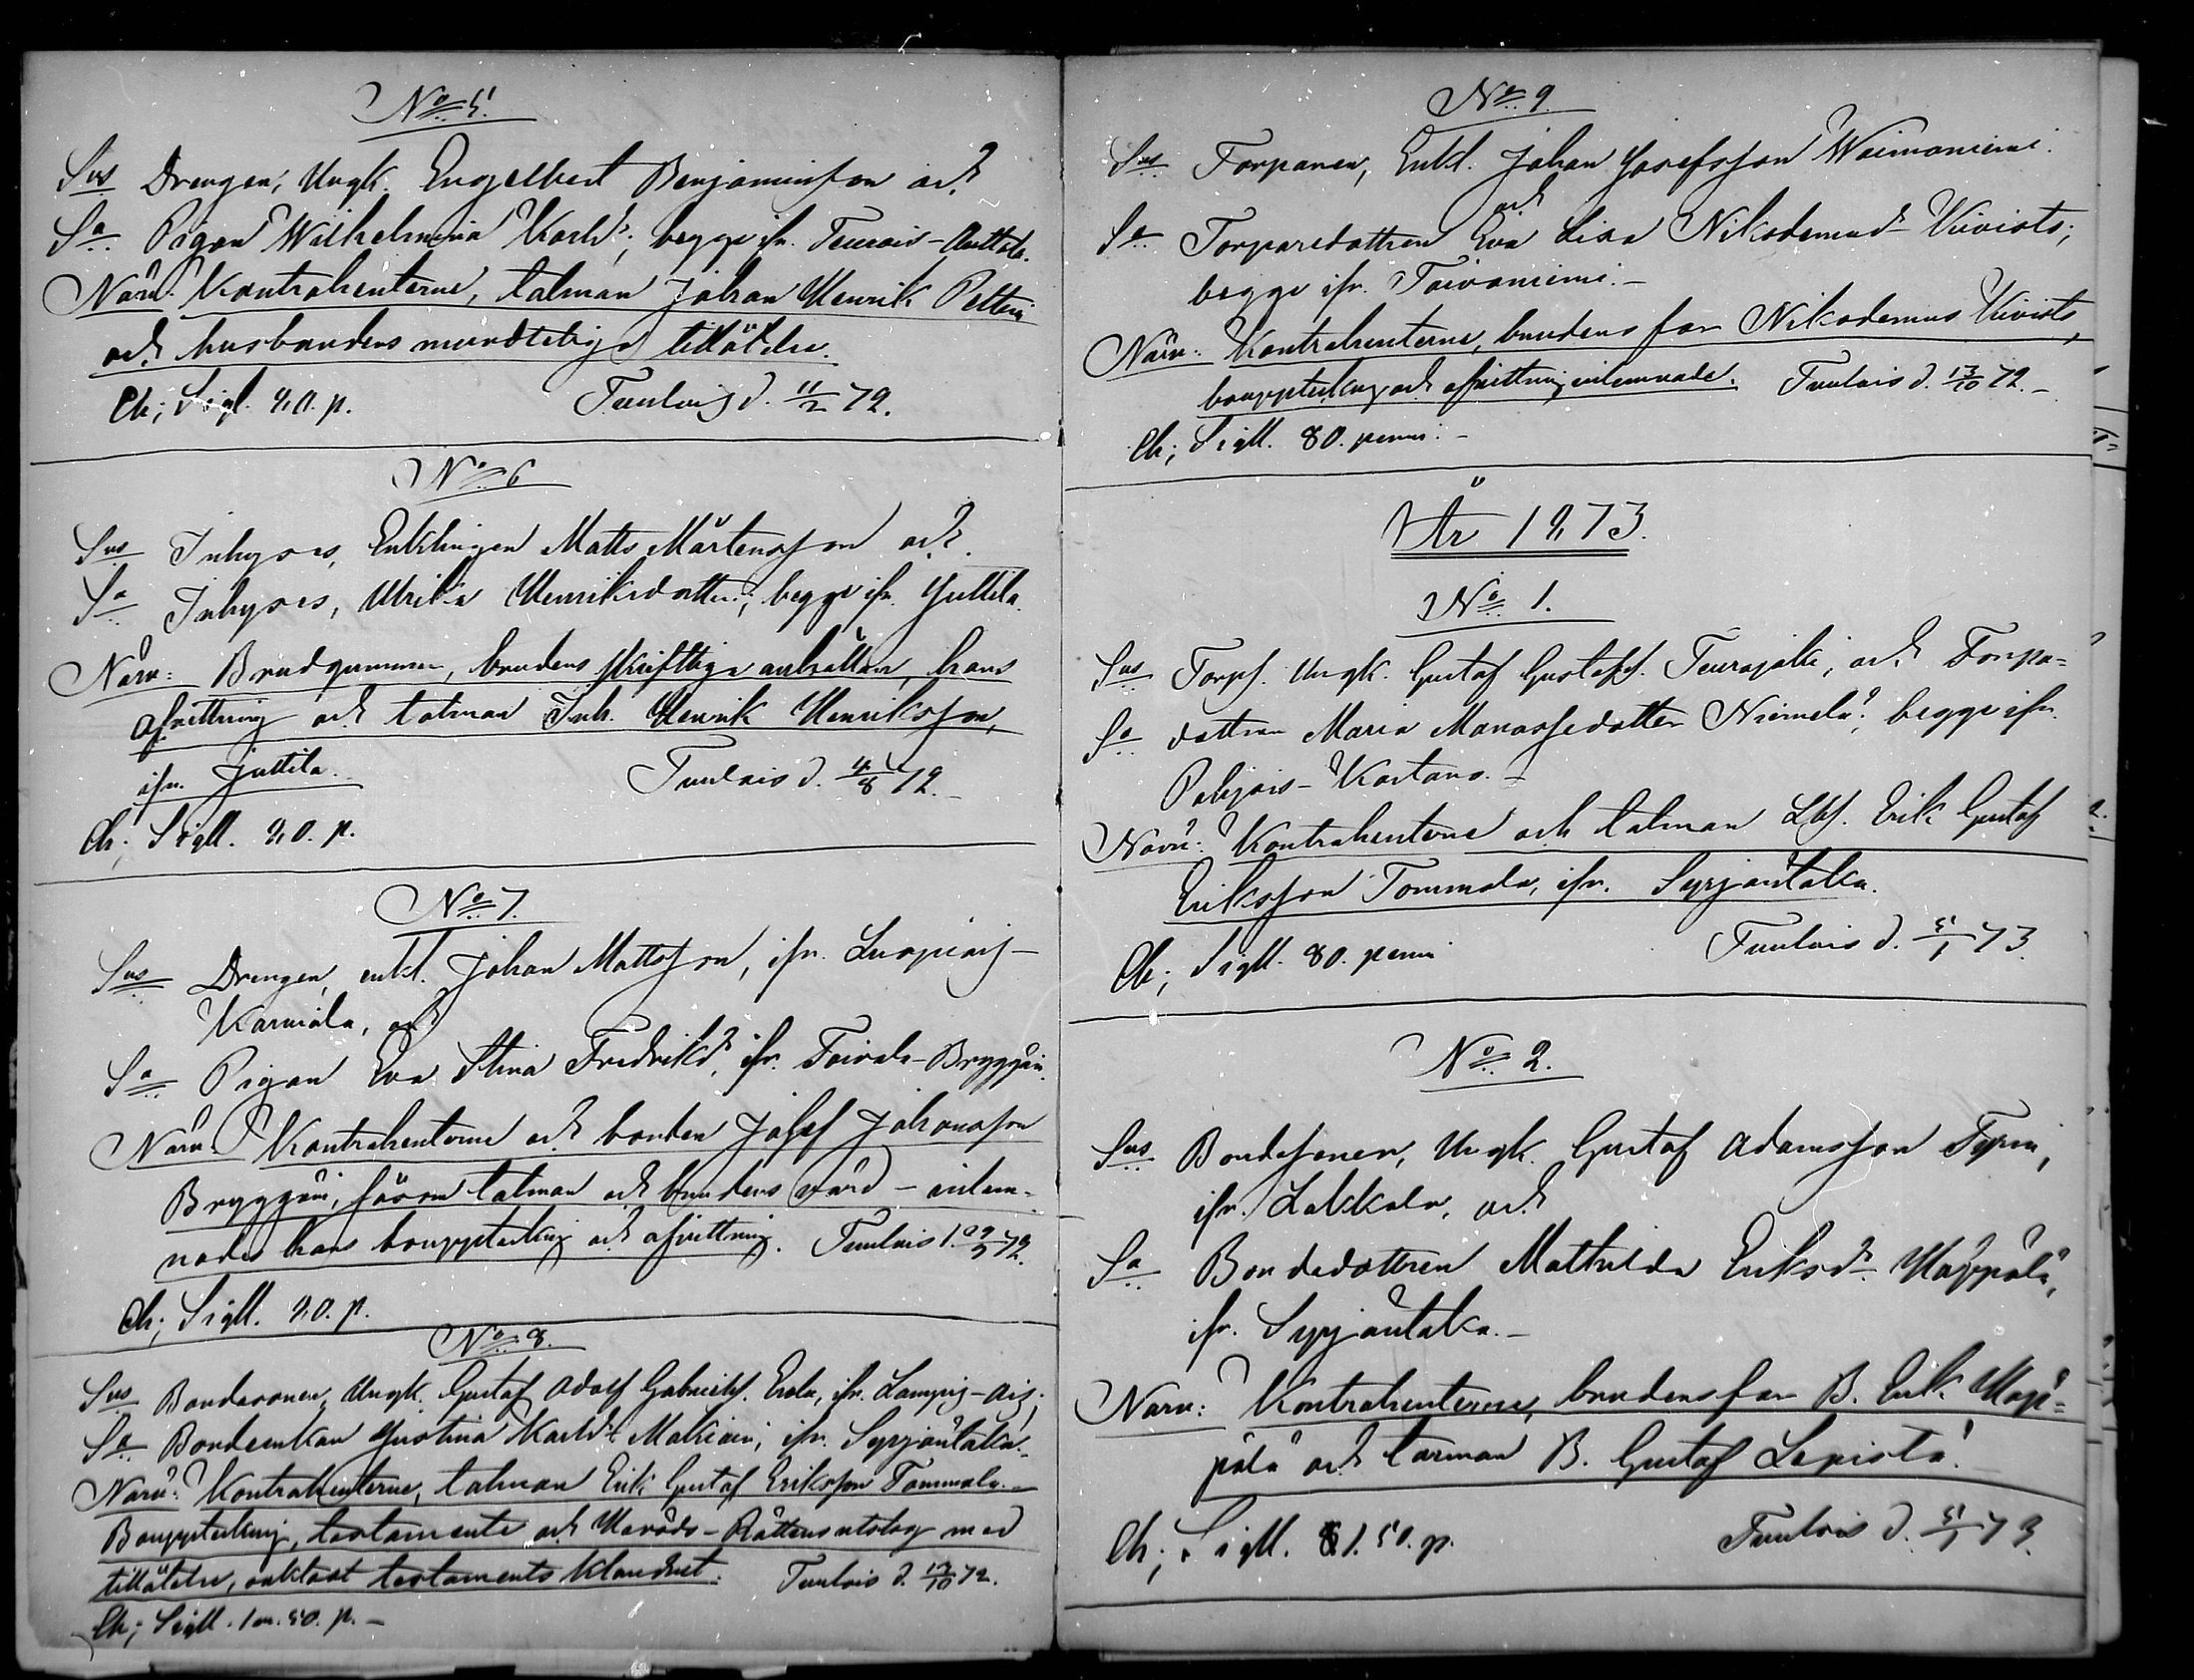 No 5.
Sus Drengen, Ungk. Engelbert Benjaminsson och
Sa Pigan Wilhelmina Karlsdr; begge ifr. Teurois-Anttila.
Närv: Kontrahenterne, talman Johan Henrik Petteri
och husbondens mundtelige tillåtelse.
Ch; Sigl. 80. p. Tuulois d. 11/2 72.
No 6
Sus Inhyses, Enklingen Matts Mårtensson och
Sa Inhyses, Ulrika Henriksdotter, begge ifr. Juttila.
Närv: Brudgummen, brudens skriftliga anhållan, hans
afvittring och talman Inh. Henrik Henriksson,
ifr. Juttila.
Tuulois d. 4/8 72.
Ch; Sigll. 80. p.
No 7.
Sus Drengen, enkl. Johan Mattsson, ifr. Luopiois-
Karmala, och
Sa Pigan Eva Stina Fredriksdr, ifr. Toivala-Bryggäri.
Närv: Kontrahenterne och bonden Josef Johansson
Bryggäri, såsom talman och brudens vård - inlem-
nades hans bouppteckning och afvittring. Tuulois d. 29/9 72.
Ch; Sigll. 80. p.
No 8.
Sus Bondesonen, Ungk. Gustaf Adolf Gabrielss. Erola, ifr. Lampis-
Sa Bondeenkan Justina Karlsdr ifr. Syrjäntaka.
Närv: Kontrahenterne, talman Erik Gustaf Eriksson Tommola.-
Bouppteckning, testamente och Härads-Rättens utslag med
tillåtelse, oaktadt testaments klandret. Tuulois d. 13/10 72.
Ch; Sigll. 1 m. 50. p. -
No 9.
Sus Torparen, Enkl. Johan Josefsson Waimoniemi.
och
Sa Torparedottren Eva Lisa Nikodemusdr Kivistö;
begge ifr. Toivaniemi. -
Närv: Kontrahenterne, brudens far Nikodemus Kivistö,
bouppteckng och afvittring inlemnade. Tuulois d. 13/10 72. -
Ch; Sigll. 80. penni. -
År 1873.
No 1.
Sus Torps. Ungk. Gustaf Gustafss. Teurajoki, och Torpa-
Sa dottren Maria Manassedotter Niemelä, begge ifr.
Pohjois-Kartano. -
Närv: Kontrahenterne och talman Lbf. Erik Gustaf
Eriksson Tommola, ifr. Syrjäntaka.
Ch; Sigll. 80. penni Tuulois d. 5/1 73.
No 2.
Sus Bondesonen, Ungk. Gustaf Adamsson Tyrni,
ifr. Lakkola, och
Sa Bondedottren Mathilda Eriksdr Häppölä,
ifr. Syrjäntaka. -
Närv: Kontrahenterne, brudens far B. Erik Häp-
pölä och talman B. Gustaf Lepistö.
Ch; Sigll. 1. 50. p. Tuulois d. 5/1 73.